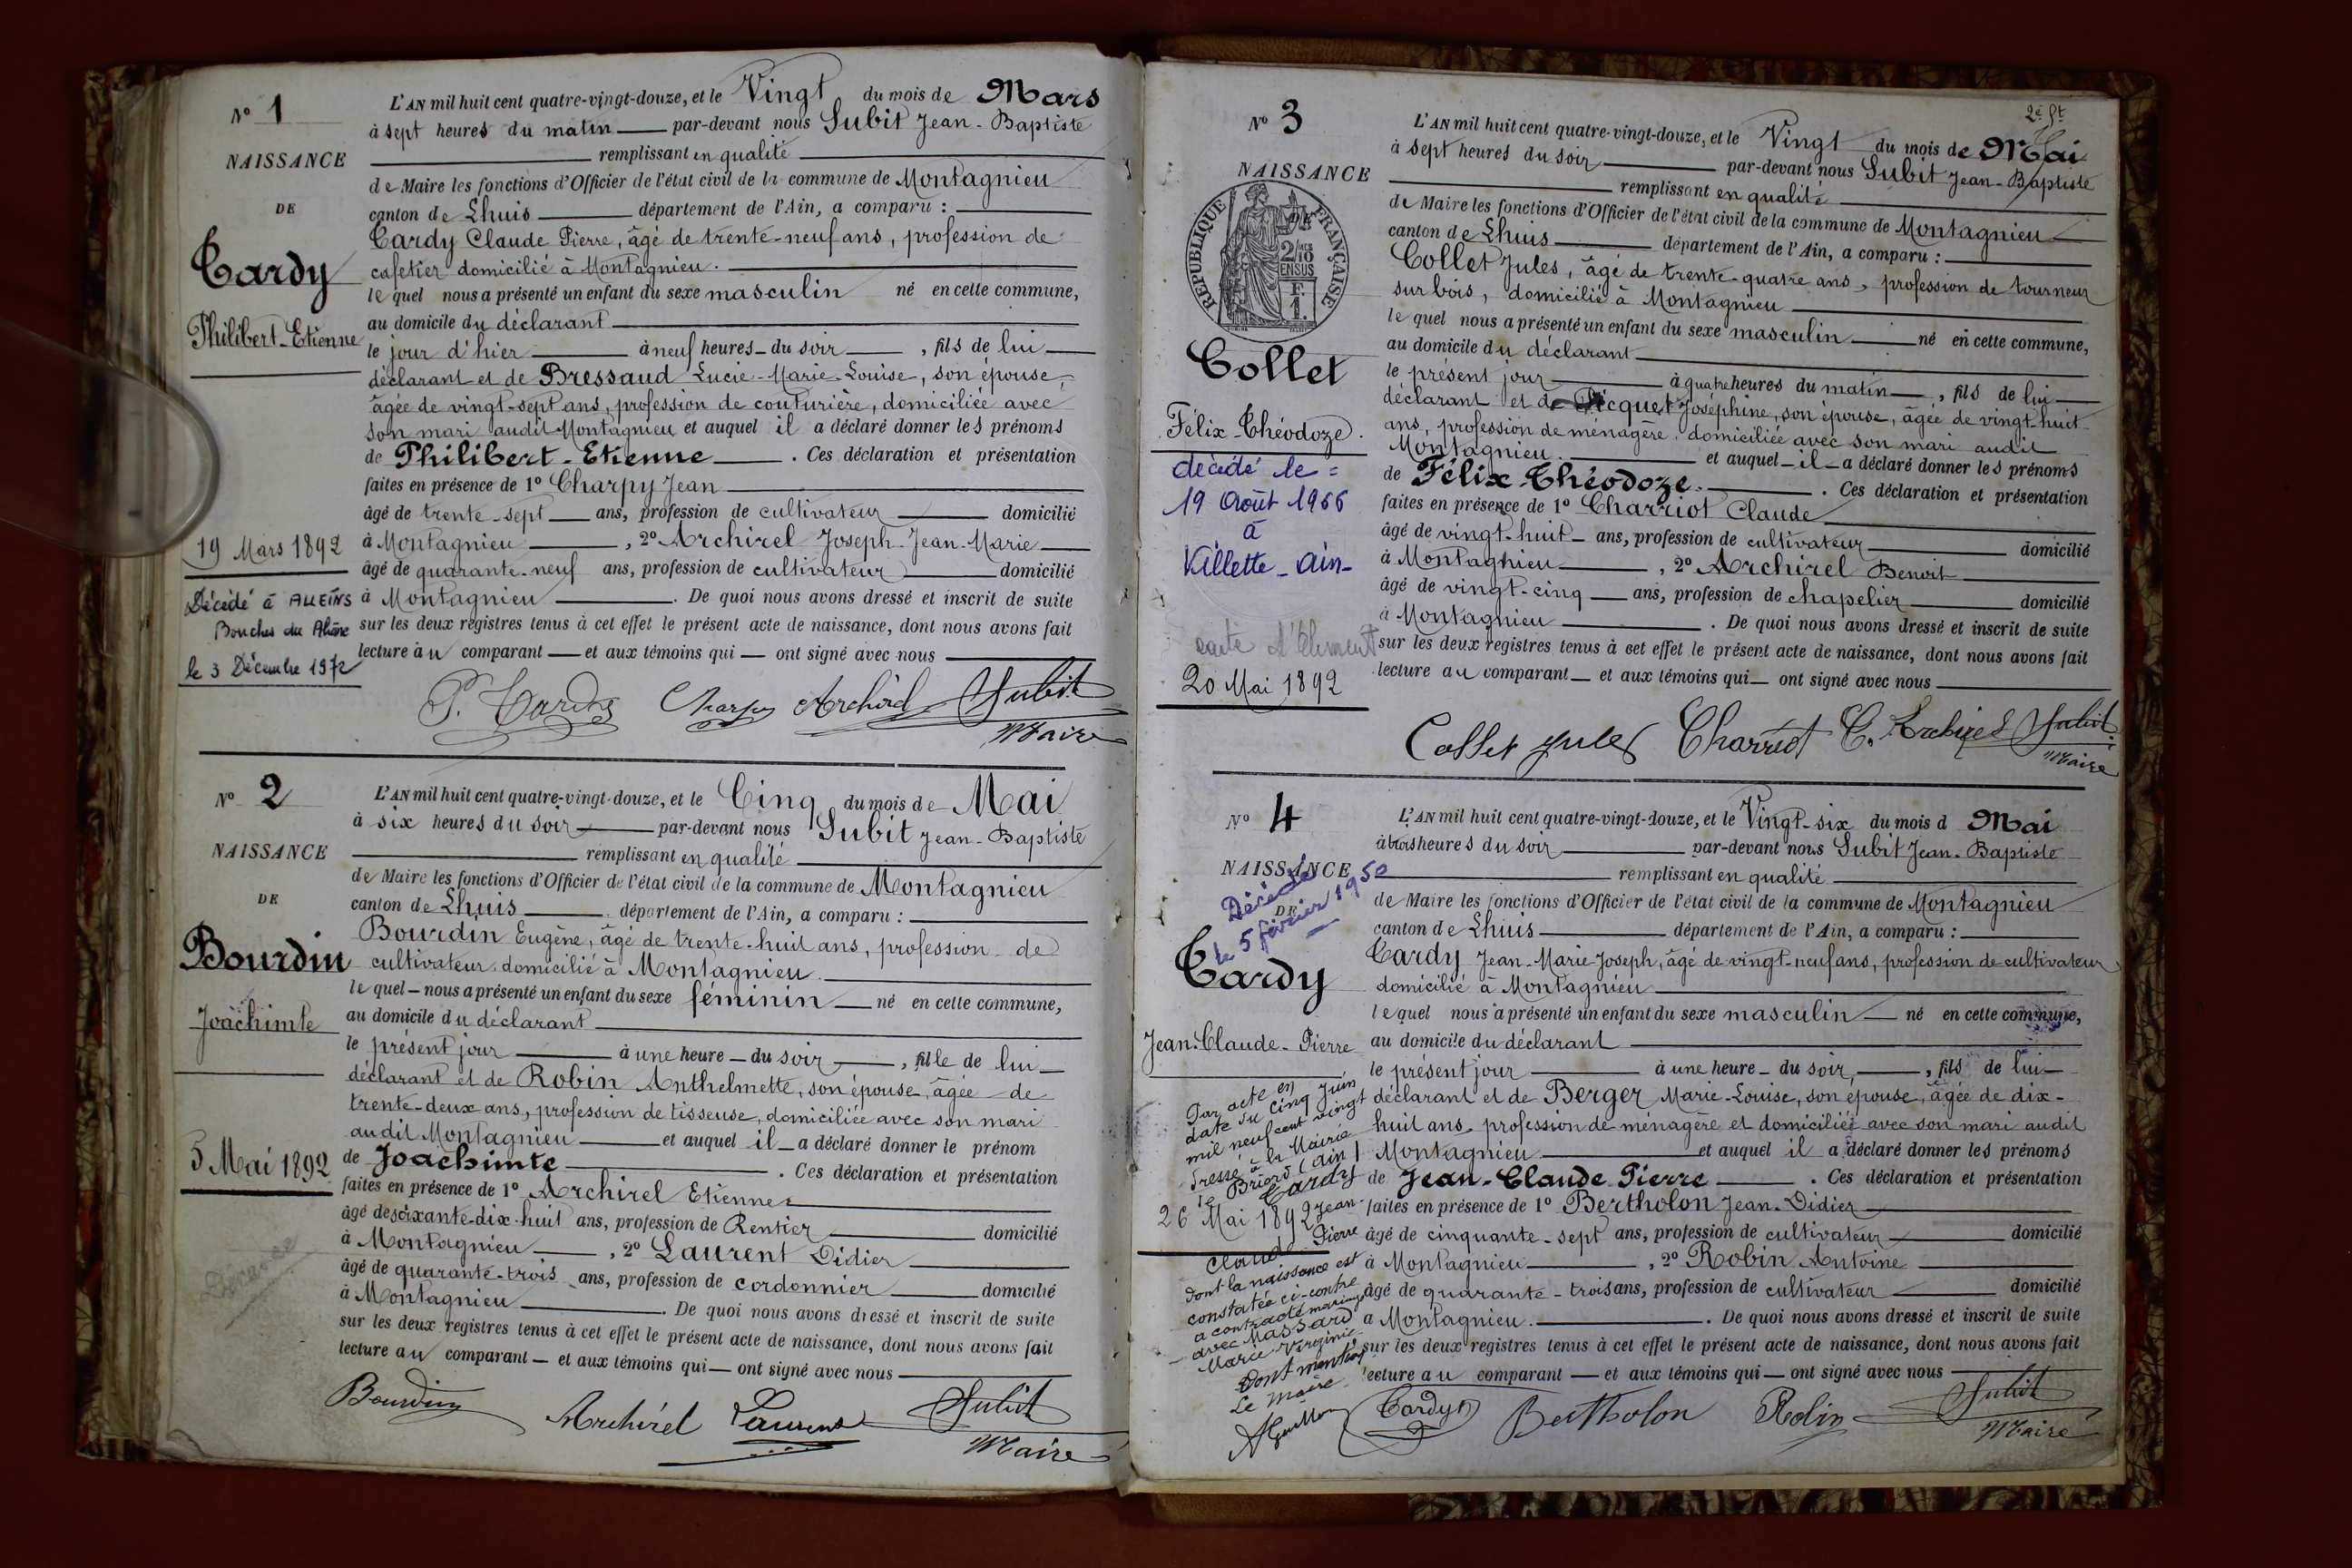 N° 1
NAISSANCE
DE
Cardy
Philibert-Etienne
19 Mars 1892
Décédé à ALLEINS
Bouches du Rhône
le 3 Décembre 1972
L'AN mil huit cent quatre-vingt-douze, et le Vingt du mois de Mars
à sept heures du matin par-devant nous Subit Jean-Baptiste
remplissant en qualité
de Maire les fonctions d'Officier de l'état civil de la commune de Montagnieu
canton de Lhuis département de l'Ain, a comparu :
Cardy Claude Pierre, âgé de trente-neuf ans, profession de
cafetier domicilié à Montagnieu.
lequel nous a présenté un enfant du sexe masculin né en cette commune,
au domicile du déclarant
le jour d'hier à neuf heures du soir, fils de lui
déclarant et de Bressaud Lucie-Marie-Louise, son épouse,
âgée de vingt-sept ans, profession de couturière, domiciliée avec
son mari audit Montagnieu et auquel il a déclaré donner les prénoms
de Philibert-Etienne. Ces déclaration et présentation
faites en présence de 1° Charpy Jean
âgé de trente-sept ans, profession de cultivateur domicilié
à Montagnieu, 2° Archirel Joseph-Jean-Marie
âgé de quarante-neuf ans, profession de cultivateur domicilié
à Montagnieu. De quoi nous avons dressé et inscrit de suite
sur les deux registres tenus à cet effet le présent acte de naissance, dont nous avons fait
lecture au comparant et aux témoins qui ont signé avec nous
P. Cardy Charpy Archirel Subit
Maire
N° 2
NAISSANCE
DE
Bourdin
Joachimte
5 Mai 1892
L'AN mil huit cent quatre-vingt-douze, et le Cinq du mois de Mai
à six heures du soir par-devant nous Subit Jean-Baptiste
remplissant en qualité
de Maire les fonctions d'Officier de l'état civil de la commune de Montagnieu
canton de Lhuis département de l'Ain, a comparu :
Bourdin Eugène, âgé de trente-huit ans, profession de
cultivateur domicilié à Montagnieu.
lequel nous a présenté un enfant du sexe féminin né en cette commune,
au domicile du déclarant
le présent jour à une heure du soir, fille de lui
déclarant et de Robin Anthelmette, son épouse, âgée de
trente-deux ans, profession de tisseuse, domiciliée avec son mari
audit Montagnieu et auquel il a déclaré donner le prénom
de Joachimte. Ces déclaration et présentation
faites en présence de 1° Archirel Etienne
âgé de soixante-dix-huit ans, profession de Rentier domicilié
à Montagnieu, 2° Laurent Didier
âgé de quarante-trois ans, profession de cordonnier domicilié
à Montagnieu. De quoi nous avons dressé et inscrit de suite
sur les deux registres tenus à cet effet le présent acte de naissance, dont nous avons fait
lecture au comparant et aux témoins qui ont signé avec nous
Bourdin Archirel Laurent Subit
Maire
2e ft
N° 3
NAISSANCE
DE
RÉPUBLIQUE FRANÇAISE
2/10
EN SUS
F.
1.
Collet
Félix-Théodoze.
décédé le =
19 Août 1966
à
Villette-Ain-
20 Mai 1892
L'AN mil huit cent quatre-vingt-douze, et le Vingt du mois de Mai
à sept heures du soir par-devant nous Subit Jean-Baptiste
remplissant en qualité
de Maire les fonctions d'Officier de l'état civil de la commune de Montagnieu
canton de Lhuis département de l'Ain, a comparu :
Collet Jules, âgé de trente-quatre ans, profession de tourneur
sur bois, domicilié à Montagnieu
lequel nous a présenté un enfant du sexe masculin né en cette commune,
au domicile du déclarant
le présent jour à quatre heures du matin, fils de lui
déclarant et de Picquet Joséphine, son épouse, âgée de vingt-huit
ans, profession de ménagère, domiciliée avec son mari audit
Montagnieu. et auquel il a déclaré donner les prénoms
de Félix-Théodoze. Ces déclaration et présentation
faites en présence de 1° Charriot Claude
âgé de vingt-huit ans, profession de cultivateur domicilié
à Montagnieu, 2° Archirel Benoit
âgé de vingt-cinq ans, profession de chapelier domicilié
à Montagnieu. De quoi nous avons dressé et inscrit de suite
sur les deux registres tenus à cet effet le présent acte de naissance, dont nous avons fait
lecture au comparant et aux témoins qui ont signé avec nous
Collet Jules Charriot C. Archirel Subit
Maire
N° 4
NAISSANCE
DE
Décédé
le 5 février 1950
Cardy
Jean-Claude-Pierre
Par acte en
date du cinq Juin
mil neuf cent vingt
dressé à la Mairie
de Briord (Ain)
Cardy
26 Mai 1892 Jean-
Claude Pierre
dont la naissance est
constatée ci-contre
a contracté mariage
avec Massard
Marie Virginie
Dont mention
Le Maire
AGuillon
L'AN mil huit cent quatre-vingt-douze, et le Vingt-six du mois d Mai
à trois heures du soir par-devant nous Subit Jean-Baptiste
remplissant en qualité
de Maire les fonctions d'Officier de l'état civil de la commune de Montagnieu
canton de Lhuis département de l'Ain, a comparu :
Cardy Jean-Marie-Joseph, âgé de vingt-neuf ans, profession de cultivateur
domicilié à Montagnieu
lequel nous a présenté un enfant du sexe masculin né en cette commune,
au domicile du déclarant
le présent jour à une heure du soir, fils de lui
déclarant et de Berger Marie-Louise, son épouse, âgée de dix-
huit ans, profession de ménagère et domiciliée avec son mari audit
Montagnieu et auquel il a déclaré donner les prénoms
de Jean-Claude Pierre. Ces déclaration et présentation
faites en présence de 1° Bertholon Jean-Didier
âgé de cinquante-sept ans, profession de cultivateur domicilié
à Montagnieu, 2° Robin Antoine
âgé de quarante-trois ans, profession de cultivateur domicilié
à Montagnieu. De quoi nous avons dressé et inscrit de suite
sur les deux registres tenus à cet effet le présent acte de naissance, dont nous avons fait
lecture au comparant et aux témoins qui ont signé avec nous
Cardy Bertholon Robin Subit
Maire